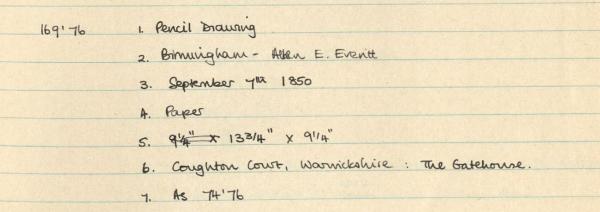 169'76 1. Pencil Drawing
2. Birmingham - Allen E. Everitt
3. September 7th 1850
4. Paper
5. 9¼" x 13 3/4" x 9 1/4"
6. Coughton Court, Warwickshire : The Gatehouse.
7. As 74'76